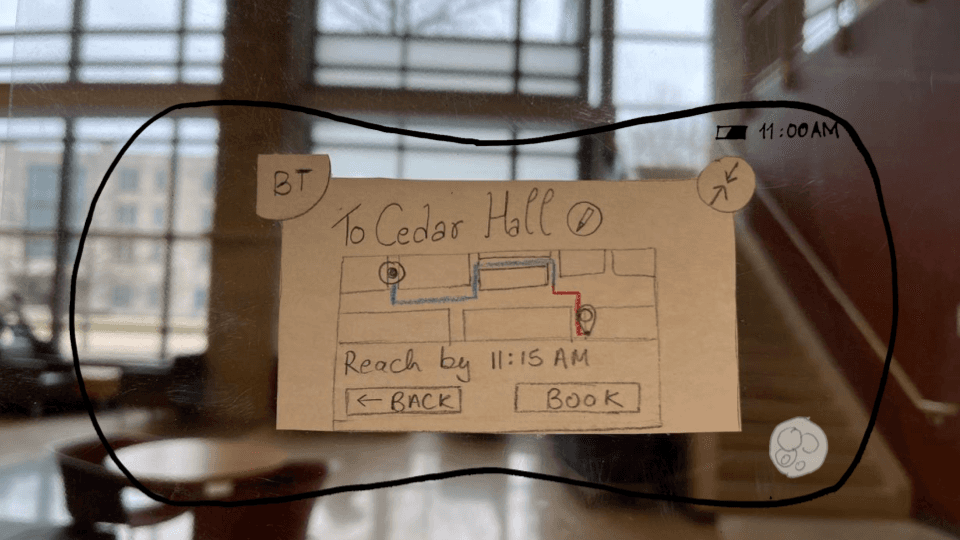 11:00AM
BT
To Cedar Hall
Reach by 11:15 AM
← BACK
BOOK